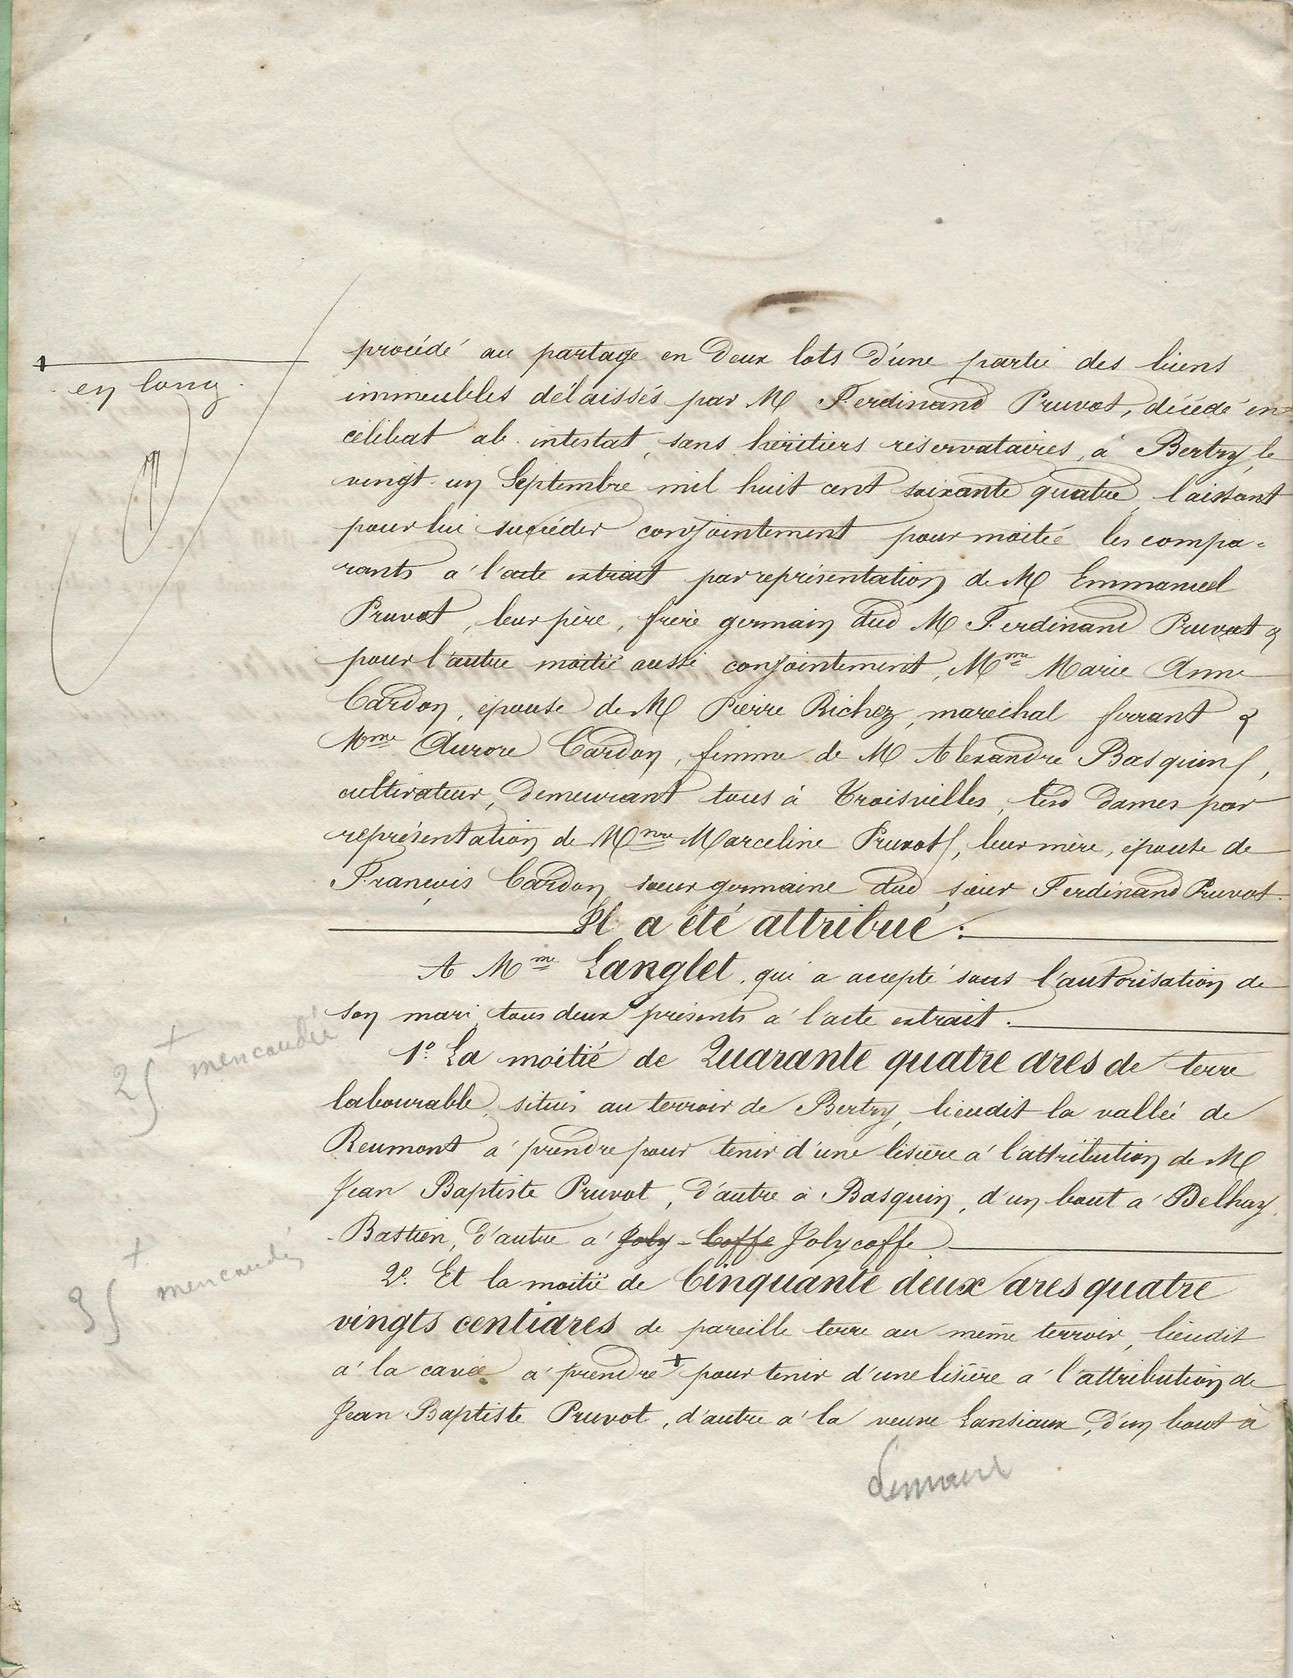 procédé au partage en deux lots d'une partie des biens
en long
immeubles délaissés par M Ferdinand Pruvot, décédé en
célibat ab intestat, sans héritiers réservataires, à Bertry, le
vingt un Septembre mil huit cent soixante quatre, laissant
pour lui succéder conjointement pour moitié les compa-
rants à l'acte extrait par représentation de M Emmanuel
Pruvot, leur père, frère germain dud M Ferdinand Pruvot &
pour l'autre moitié aussi conjointement, Mme Marie Anne
Cardon, épouse de M Pierre Richez, maréchal ferrant &
Mme Aurore Cardon, femme de M Alexandre Basquin,
cultivateur, demeurant tous à Troisvilles, lesd dames par
représentation de Mme Marceline Pruvot, leur mère, épouse de
François Cardon, sœur germaine dud sieur Ferdinand Pruvot.
Il a été attribué:
A Mme Langlet, qui a accepté sous l'autorisation de
son mari, tous deux présents à l'acte extrait.
mencaudée
1º. La moitié de Quarante quatre ares de terre
labourable, situés au terroir de Bertry, lieudit la vallée de
Reumont à prendre pour tenir d'une lisière à l'attribution de M
Jean Baptiste Pruvot, d'autre à Basquin, d'un bout à Delhay
Bastien, d'autre à Joly-Coffe Jolycoffe.
mencaudées
2º. Et la moitié de Cinquante deux ares quatre
vingts centiares de pareille terre au même terroir, lieudit
à la cavée à prendre + pour tenir d'une lisière à l'attribution de
Jean Baptiste Pruvot, d'autre à la veuve Lansiaux, d'un bout à